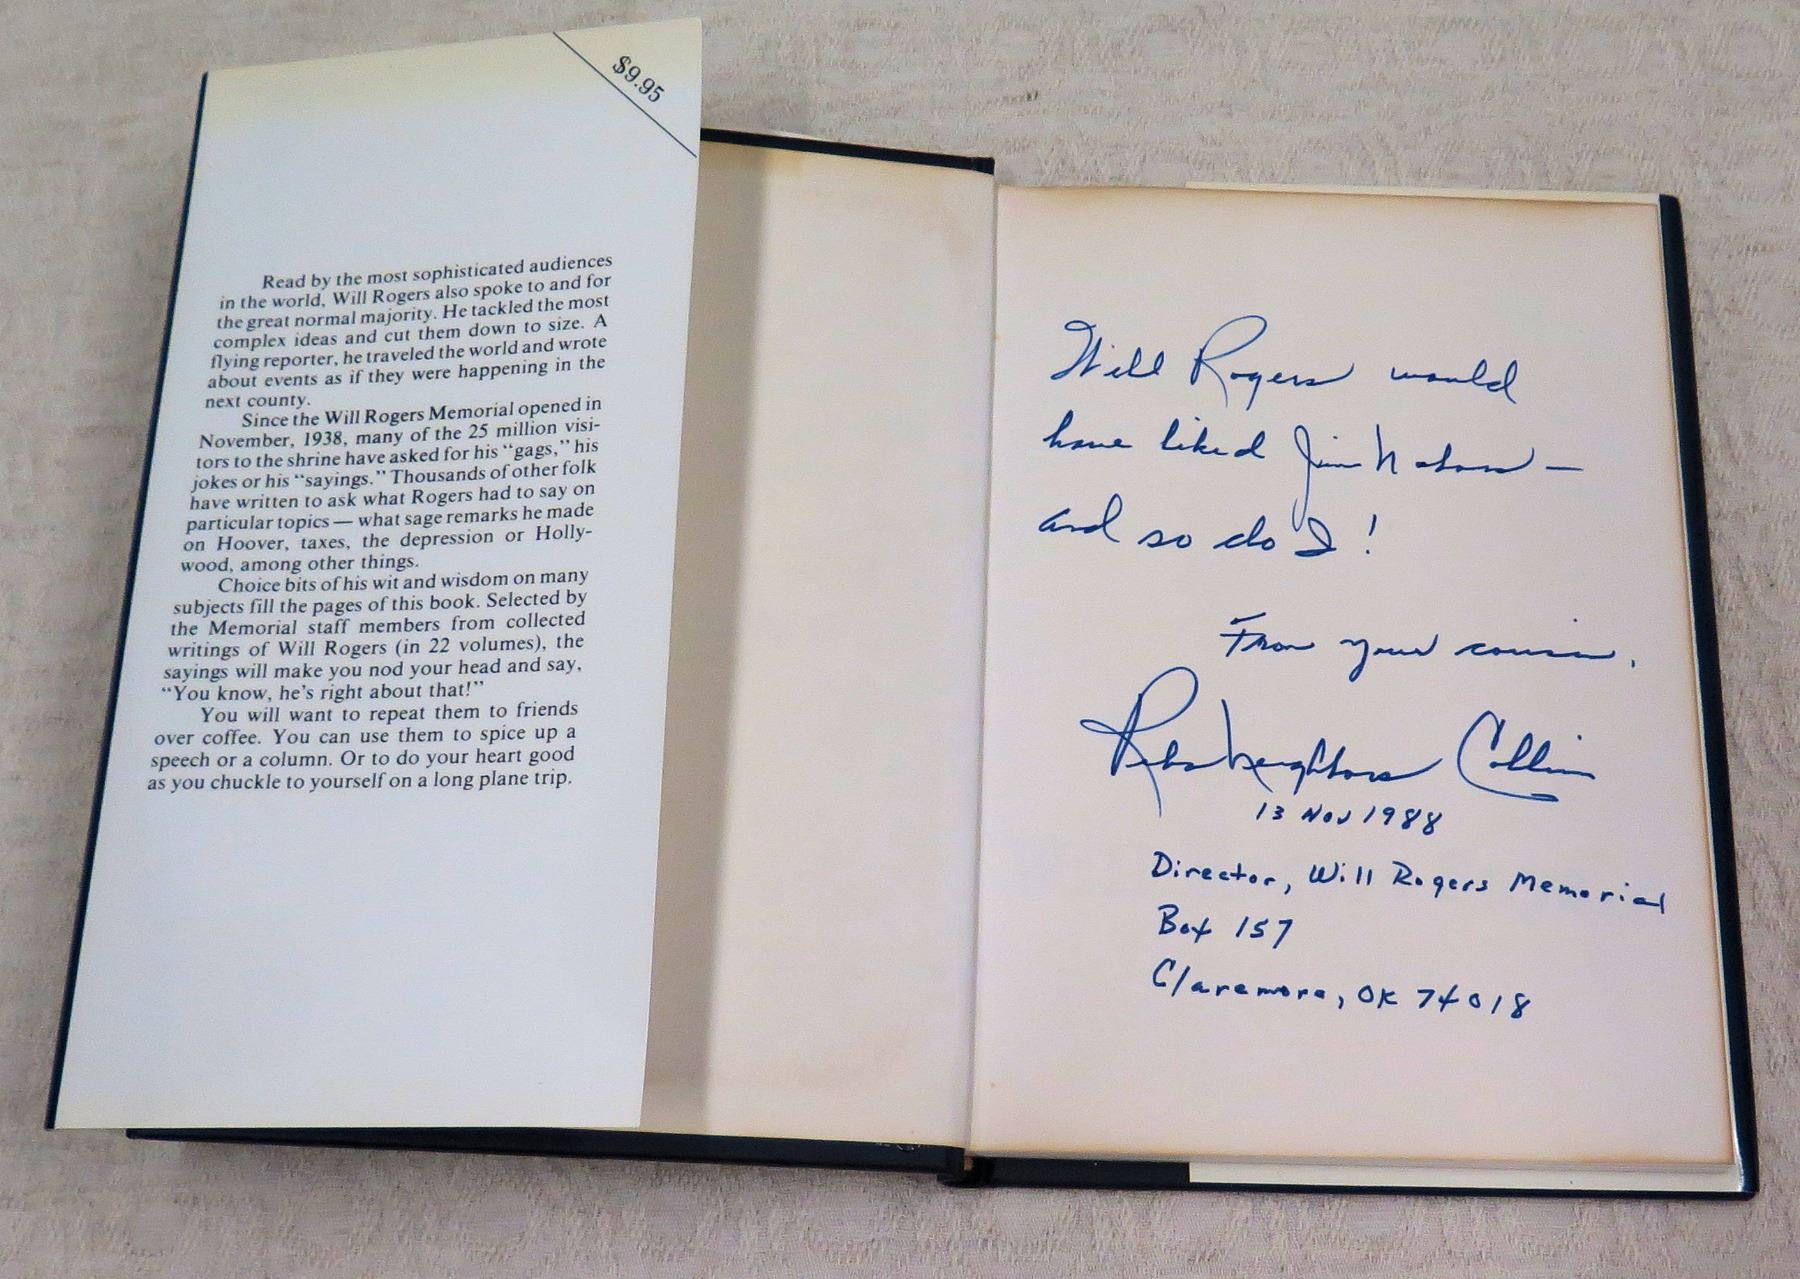 $9.95
Read by the most sophisticated audiences
in the world, Will Rogers also spoke to and for
the great normal majority. He tackled the most
complex ideas and cut them down to size. A
flying reporter, he traveled the world and wrote
about events as if they were happening in the
next county.
Since the Will Rogers Memorial opened in
November, 1938, many of the 25 million visi-
tors to the shrine have asked for his “gags,” his
jokes or his “sayings.” Thousands of other folk
have written to ask what Rogers had to say on
particular topics — what sage remarks he made
on Hoover, taxes, the depression or Holly-
wood, among other things.
Choice bits of his wit and wisdom on many
subjects fill the pages of this book. Selected by
the Memorial staff members from collected
writings of Will Rogers (in 22 volumes), the
sayings will make you nod your head and say,
“You know, he's right about that!”
You will want to repeat them to friends
over coffee. You can use them to spice up a
speech or a column. Or to do your heart good
as you chuckle to yourself on a long plane trip.
Will Rogers would
have liked Jim —
and so do I!
From your cousin,
Reba Neighbors Collins
13 Nov 1988
Director, Will Rogers Memorial
Box 157
Claremore, OK 74018